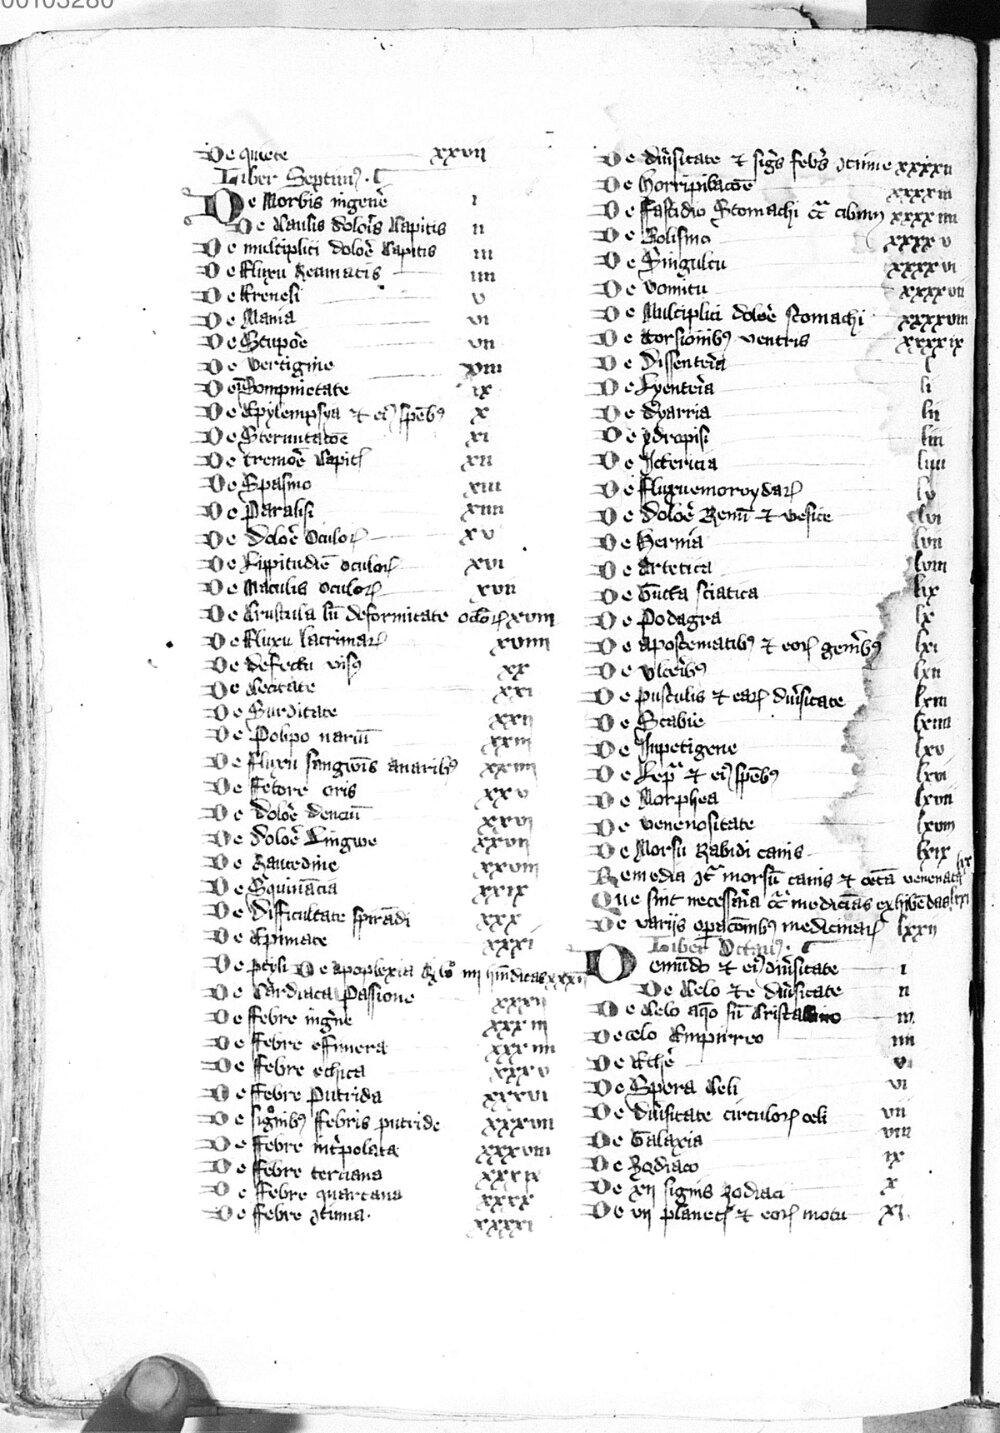 00103280
De quiete xxvii
Liber Septimꝰ
De Morbis in gen̄e i
De Causis doloīs Capitis ii
De multiplici dolōe Capitis iii
De Fluxu Reumatis iiii
De frenesi v
De Mania vi
De Stupōe vii
De vertigine viii
De Sompnietate ix
De Epylempsya et eiꝰ spēbꝰ x
De Sternutacōe xi
De tremōe Capitꝭ xii
De Spasmo xiii
De Paralisi xiiii
De dolōe Oculoꝝ xv
De Lippitudīe oculoꝝ xvi
De Maculis oculoꝝ xvii
De Crustula deformitate ocloꝝ xviii
De fluxu lacrimaꝝ xviiii
De defectu visꝰ xx
De Cecitate xxi
De Surditate xxii
De Polipo nariū xxiii
De fluxu sangwīs a naribꝰ xxiiii
De Fetore oris xxv
De dolōe denciū xxvi
De dolōe Lingwe xxvii
De Raucedine xxviii
De Squināncia xxix
De difficultate spirādi xxx
De Epimate xxxi
De ptysi De apoplexia
De Cardiaca Passione xxxii
De ffebre in gn̄e xxxiii
De ffebre effimera xxxiiii
De ffebre ethica xxxv
De ffebre Putrida xxxvi
De signibꝰ ffebris putride xxxvii
De ffebre int̄polata xxxviii
De ffebre terciana xxxix
De ffebre quartana xxxx
De ffebre ꝯtinua xxxxi
De diūsitate et sigīs febīs ꝯtinue xxxxii
De horripilacōe xxxxiii
De Fastidio Stomachi cibum xxxxiiii
De Bolismo xxxxv
De Singultu xxxxvi
De vomitu xxxxvii
De Multiplici dolōe stomachi xxxxviii
De torsionibꝰ ventris xxxxix
De Dissentēia l
De Lyentēia li
De dyarria lii
De ydropisi liii
De Ictericia liiii
De fluxu emoroydaꝝ lv
De dolōe Renū et vesice lvi
De hernia lvii
De Artetica lviii
De Gutta sciatica lix
De Podagra lx
De apostematibꝰ et eoꝝ genībꝰ lxi
De vlcēibꝰ lxii
De pustulis et eaꝝ diūsitate lxiii
De Scabie lxiiii
De Inpetigene lxv
De Lepᵃ et eiꝰ spēbꝰ lxvi
De Morphea lxvii
De venenositate lxviii
De Morsu Rabidi canis lxix
Remedia ꝯtᵃ morsū canis et venenata lxx
Que sint necessāia medicinas exhibēdas lxxi
De varijs opacōibꝰ medicinaꝝ lxxii
Liber Octauꝰ
De mūdo et eiꝰ diūsitate i
De Celo et diūsitate ii
De Celo aqo siū Cristallino iii
De celo Empirreo iiii
De Ethē v
De Spera Celi vi
De diūsitate circuloꝝ celi vii
De Galaxia viii
De zodiaco ix
De xii signis zodiaci x
De vii planetꝭ et eoꝝ motu xi